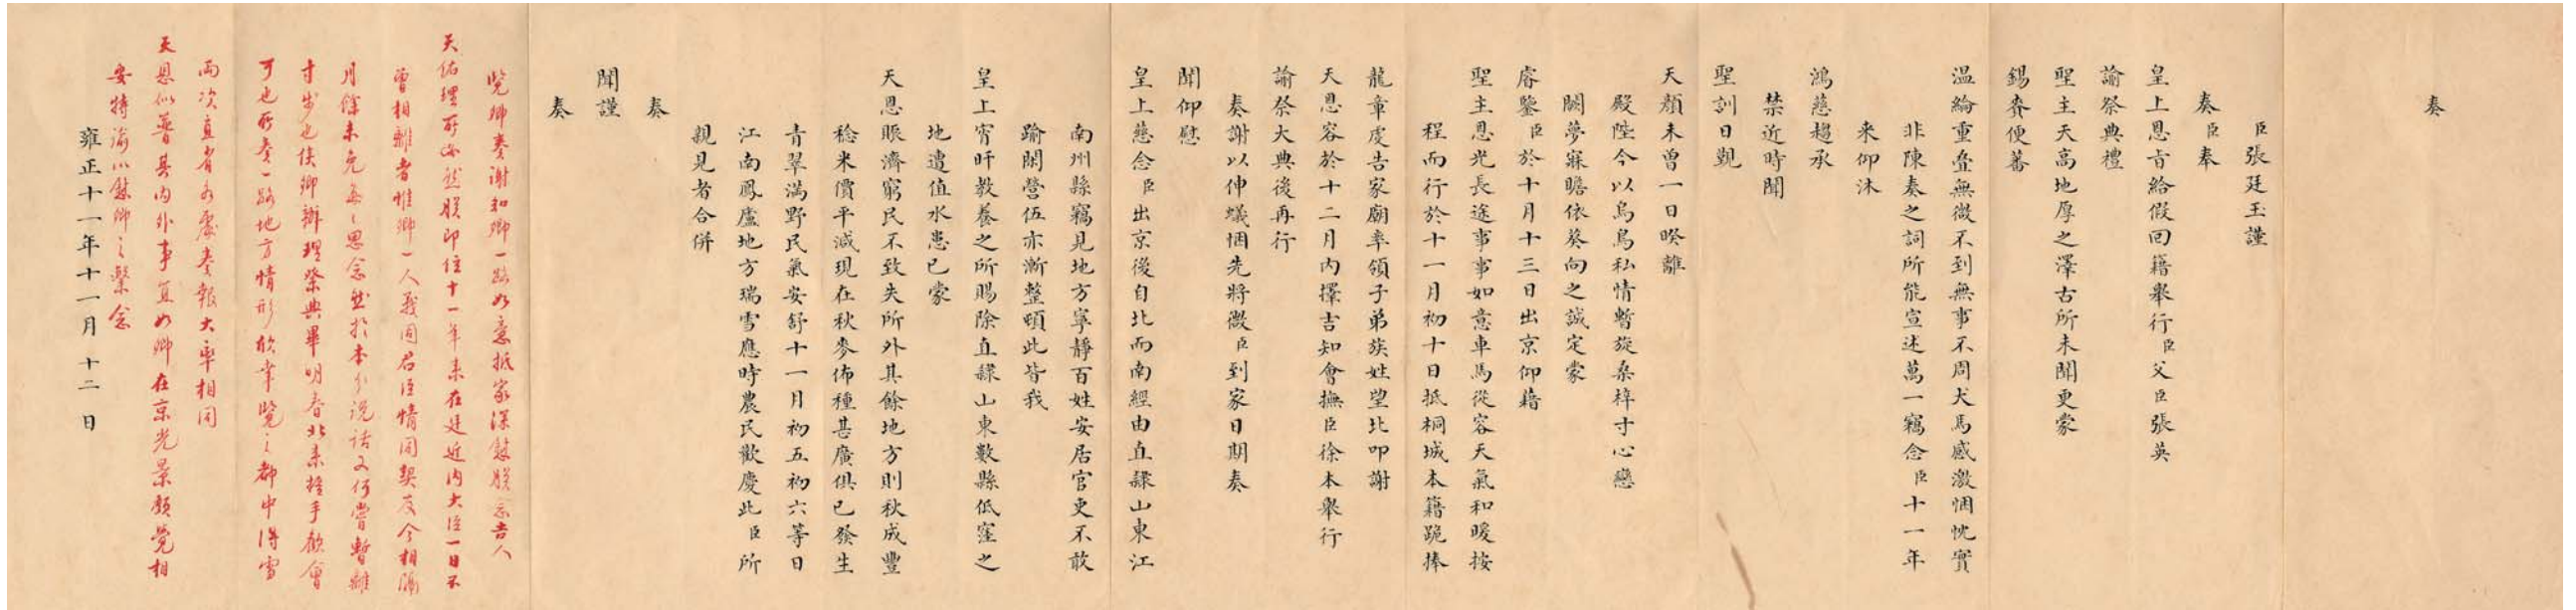 奏
臣張廷玉謹
奏臣奉
皇上恩旨給假回籍舉行臣父臣張英
諭祭典禮
聖主天高地厚之澤古所未聞更蒙
錫賚便蕃
温綸重疊無微不到無事不周犬馬感激悃忱實
非陳奏之詞所能宣述萬一竊念臣十一年
来仰沐
鴻慈趨承
禁近時聞
聖訓日覲
天顏未曾一日暌離
殿陛今以烏鳥私情暫旋桑梓寸心戀
闕夢寐瞻依葵向之誠定蒙
睿鑒臣於十月十三日出京仰藉
聖主恩光長途事事如意車馬從容天氣和暖按
程而行於十一月初十日抵桐城本籍跪捧
龍章虔告家廟率領子弟族姓望北叩謝
天恩容於十二月內擇吉知會撫臣徐本舉行
諭祭大典後再行
奏謝以伸蟻悃先將微臣到家日期奏
聞仰慰
皇上慈念臣出京後自北而南經由直隸山東江
南州縣竊見地方寧靜百姓安居官吏不敢
踰閑營伍亦漸整頓此皆我
皇上宵旰教養之所賜除直隸山東數縣低窪之
地遭值水患已蒙
天恩賑濟窮民不致失所外其餘地方則秋成豐
稔米價平減現在秋麥佈種甚廣俱已發生
青翠滿野民氣安舒十一月初五初六等日
江南鳳廬地方瑞雪應時農民歡慶此臣所
親見者合併
奏
聞謹
奏
覽卿奏謝和卿一路如意抵家深慰朕念吉人
天佑理所必然朕即位十一年來在廷近內大臣一日不
曾相離者惟卿一人義固君臣情同契友今相隔
月餘未免每每思念然於本分說話又何嘗暫離
寸步也俟卿辦理祭典畢明春北來握手歡會
可也所奏一路地方情形欣幸覽之都中得雪
兩次直省各處奏報大率相同
天恩似普其內外事宜如卿在京光景願覺相
安特諭以慰卿之繫念
雍正十一年十一月十二日